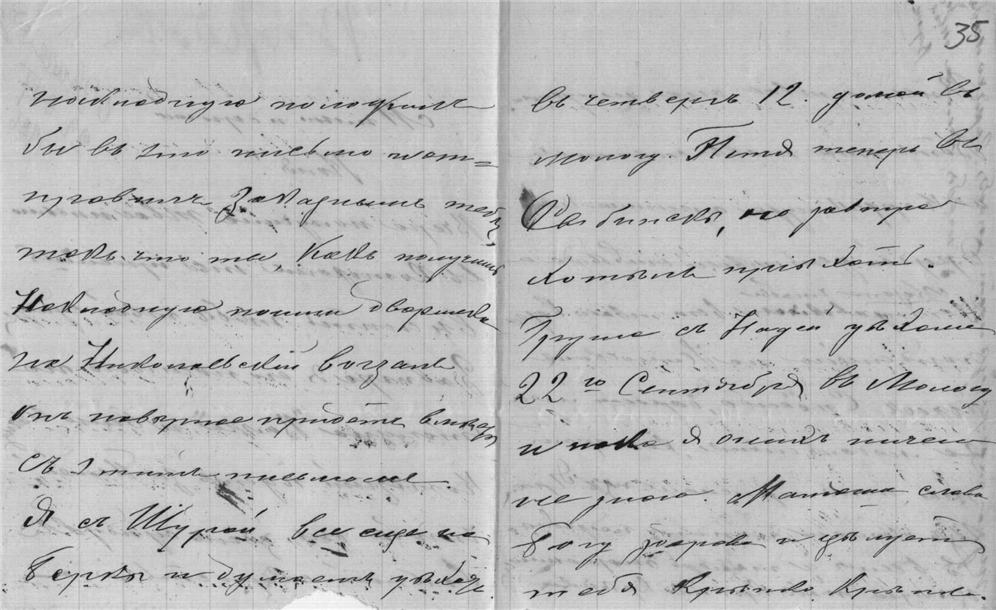 накладную положилъ
бы въ это письмо и от=
правилъ заказнымъ тебѣ,
такъ что ты, какъ получишь
Накладную пошли дворника
на Николаевскій вокзалъ
онъ навѣрное придетъ вмѣстѣ
съ этимъ письмомъ
Я съ Шурой все еще на
и думаемъ уѣхать
35
въ четвергъ 12. домой въ
Мологу. Петя теперь въ
Рыбинскѣ, но завтра
хотѣлъ пріѣхать.
Груша съ Надей уѣхали
22го Сентября въ Мологу
и пока я о нихъ ничего
не знаю. Мамаша слава
Богу здорова и цѣлуетъ
тебя крѣпко крѣпко.